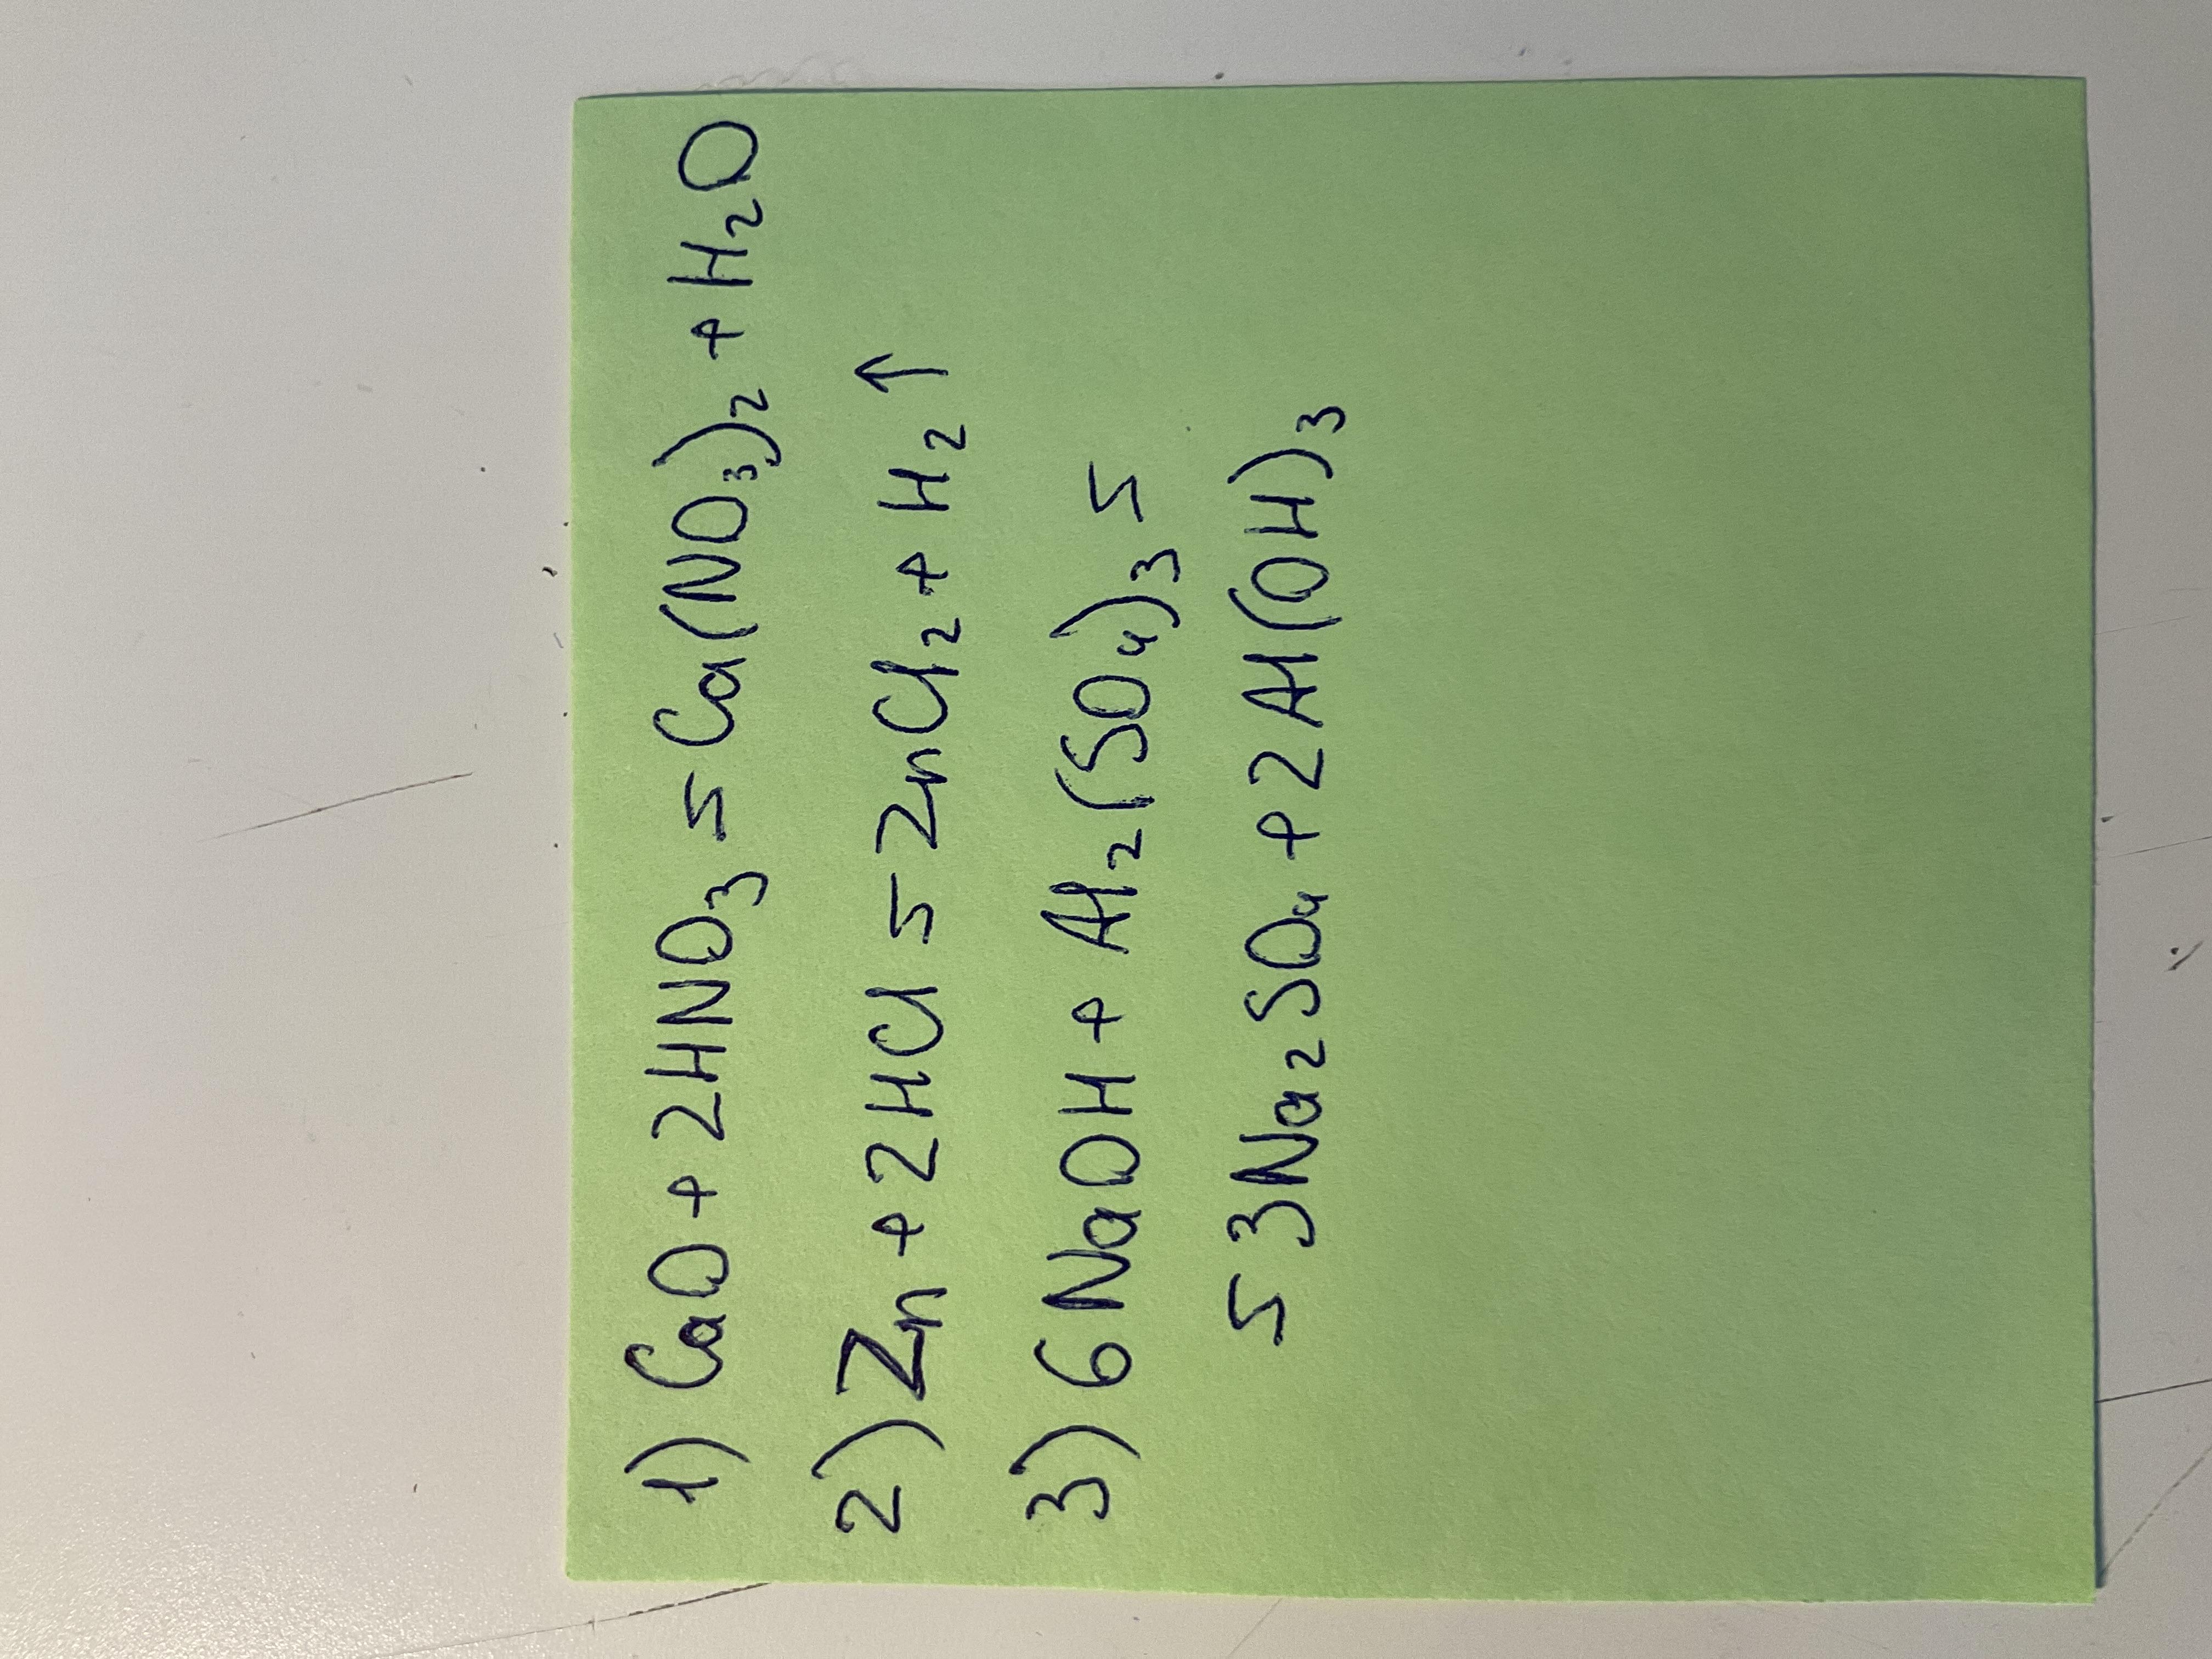 1) CaO + 2HNO₃ = Ca(NO₃)₂ + H₂O
2) Zn + 2HCl = ZnCl₂ + H₂↑
3) 6NaOH + Al₂(SO₄)₃ =
= 3Na₂SO₄ + 2Al(OH)₃